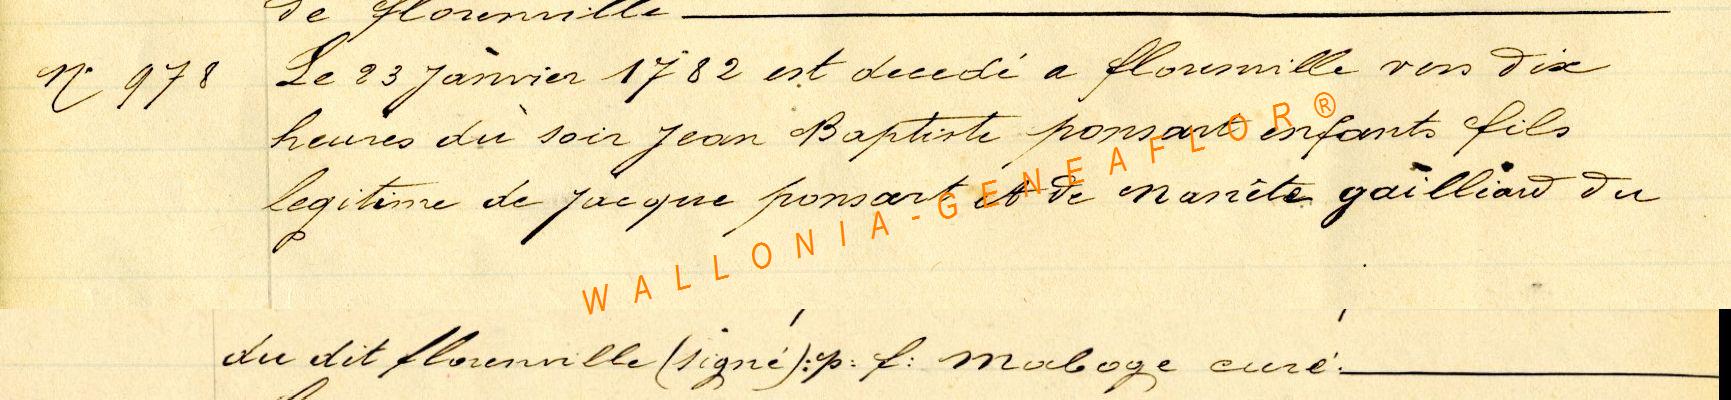 de florenville
N° 978 Le 23 janvier 1782 est decedé a florenville vers dix
heures du soir jean Baptiste ponsart enfants fils
legitime de jacque ponsart et de nanète gailliard du
WALLONIA-GENEAFLOR®
du dit florenville (signé): p: f: Maboge curé: